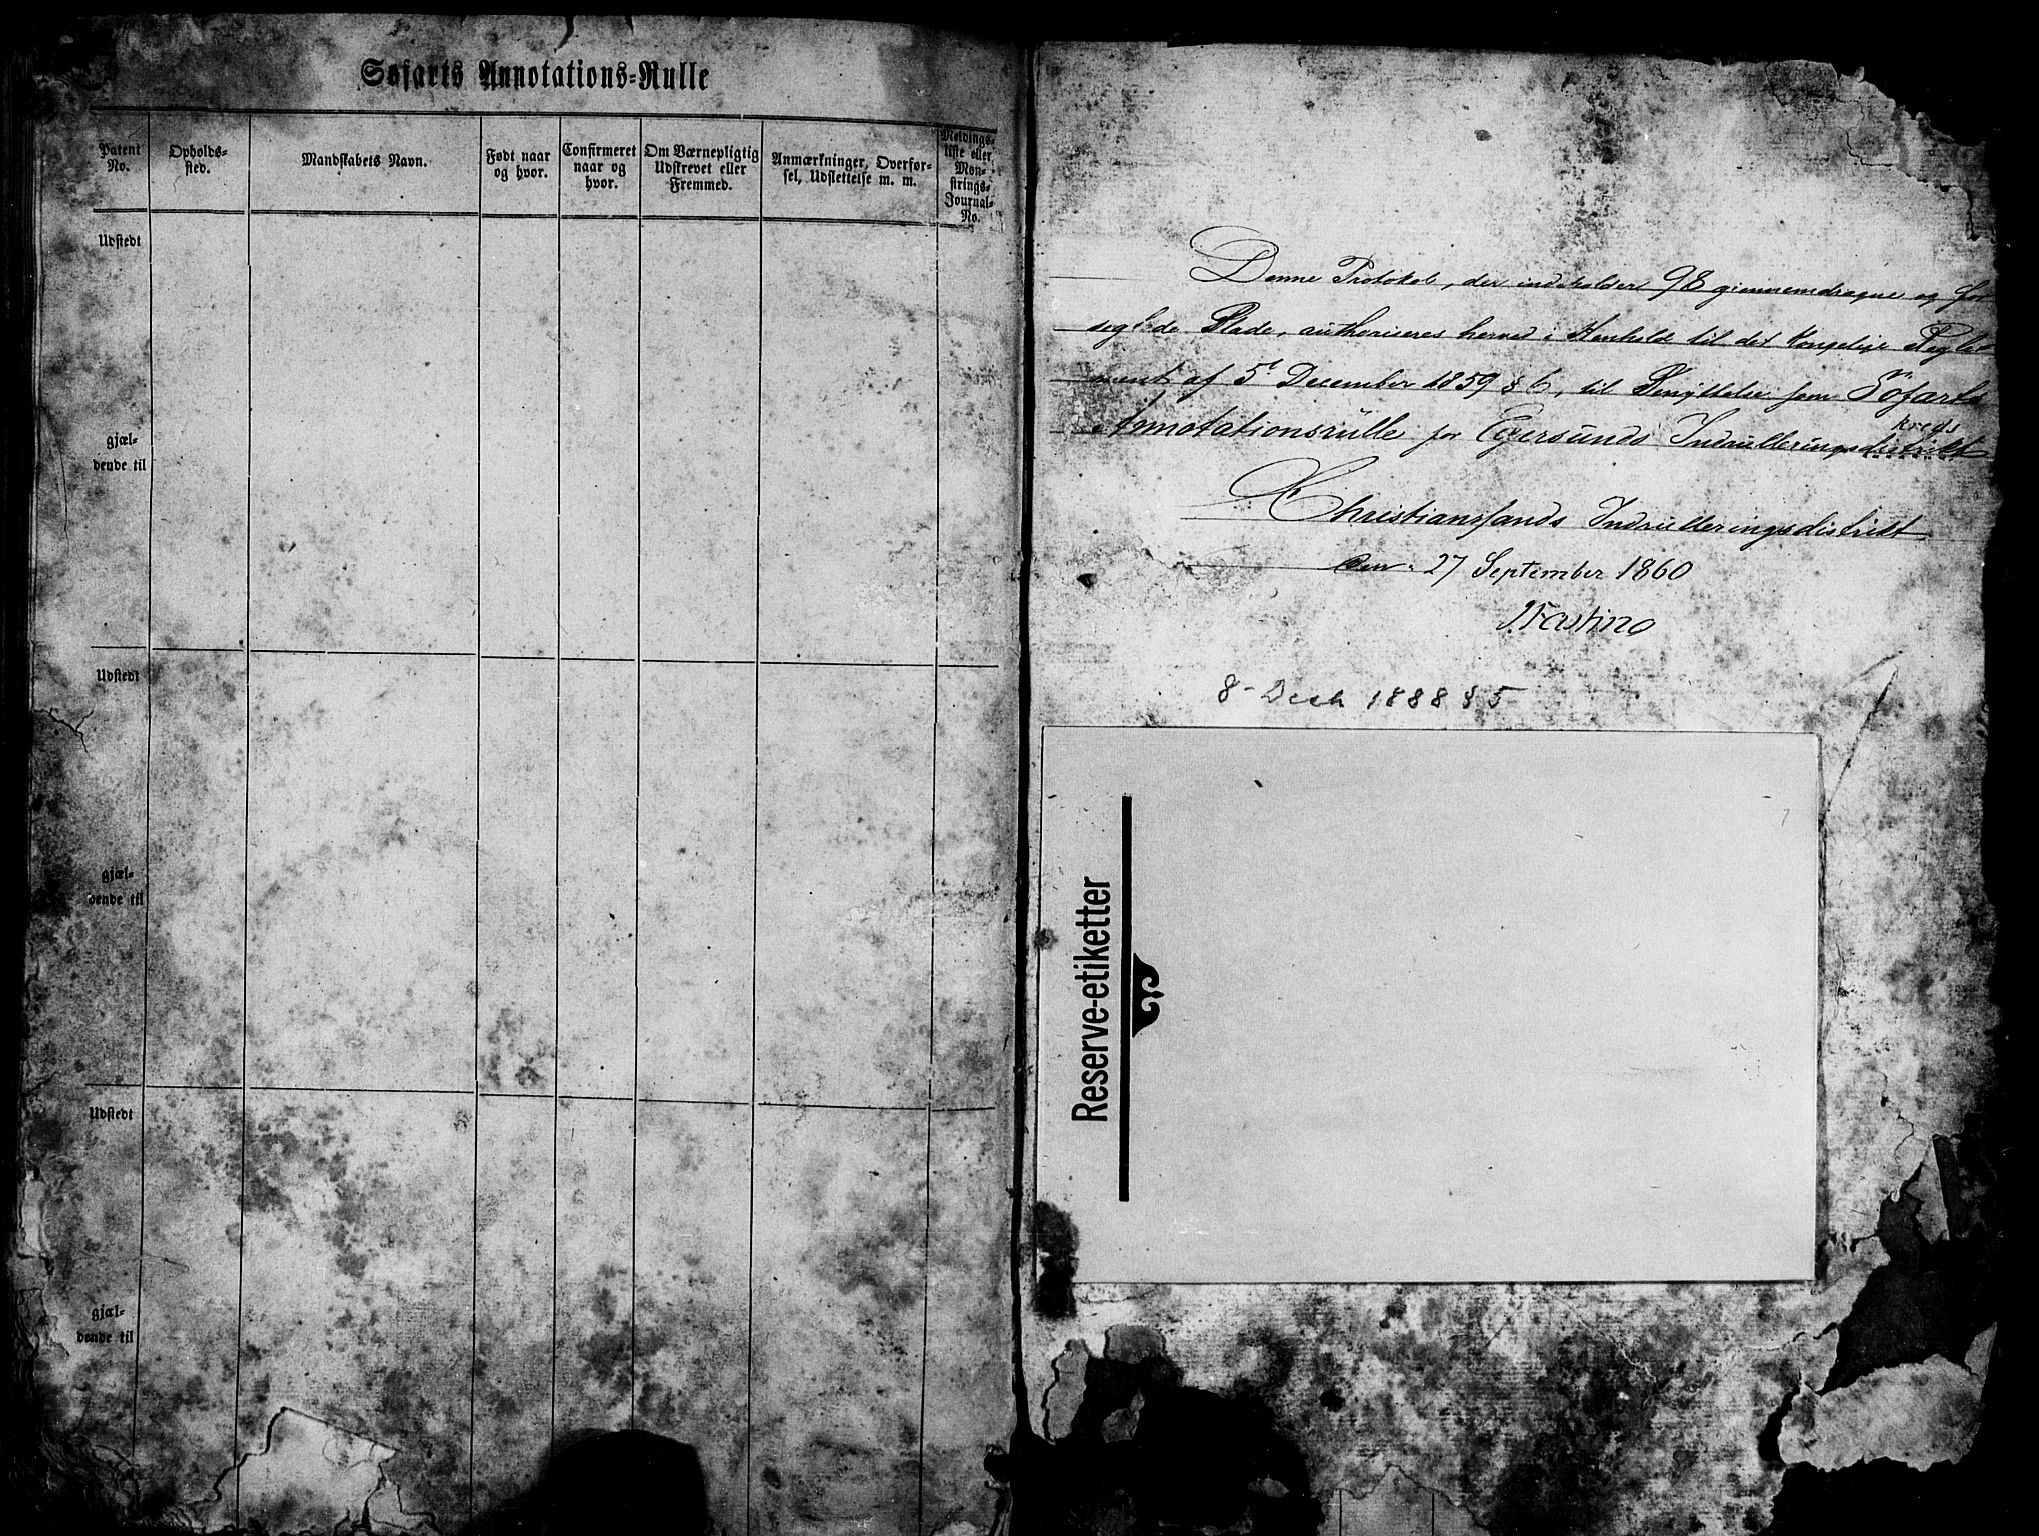 Søfarts Annotations-Rulle
Patent No.
Opholds-
sted.
Mandskabets Navn.
Født naar
og hvor.
Confirmeret
naar og
hvor.
Om Værnepligtig
Udskrevet eller
Fremmed.
Anmærkninger, Overfør-
sel, Udslettelse m. m.
Meldings-
liste eller
Møn-
strings-
Journal-
No.
Udstedt
gjæl-
dende til
Udstedt
gjæl-
dende til
Udstedt
gjæl-
dende til
Denne Protokol, der indeholder 98 giennemdragne og for
seglede Blade, authoriseres herved i Henhold til det kongelige Regle-
ment af 5t December 1859 § 6, til Benyttelse som Søfarts
Annotationsrulle for Egersunds Indrulleringsdistrikt
kreds
Christianssands Indrulleringsdistrikt
den 27 September 1860
8- Desb 1888 § 5
Reserve-etiketter